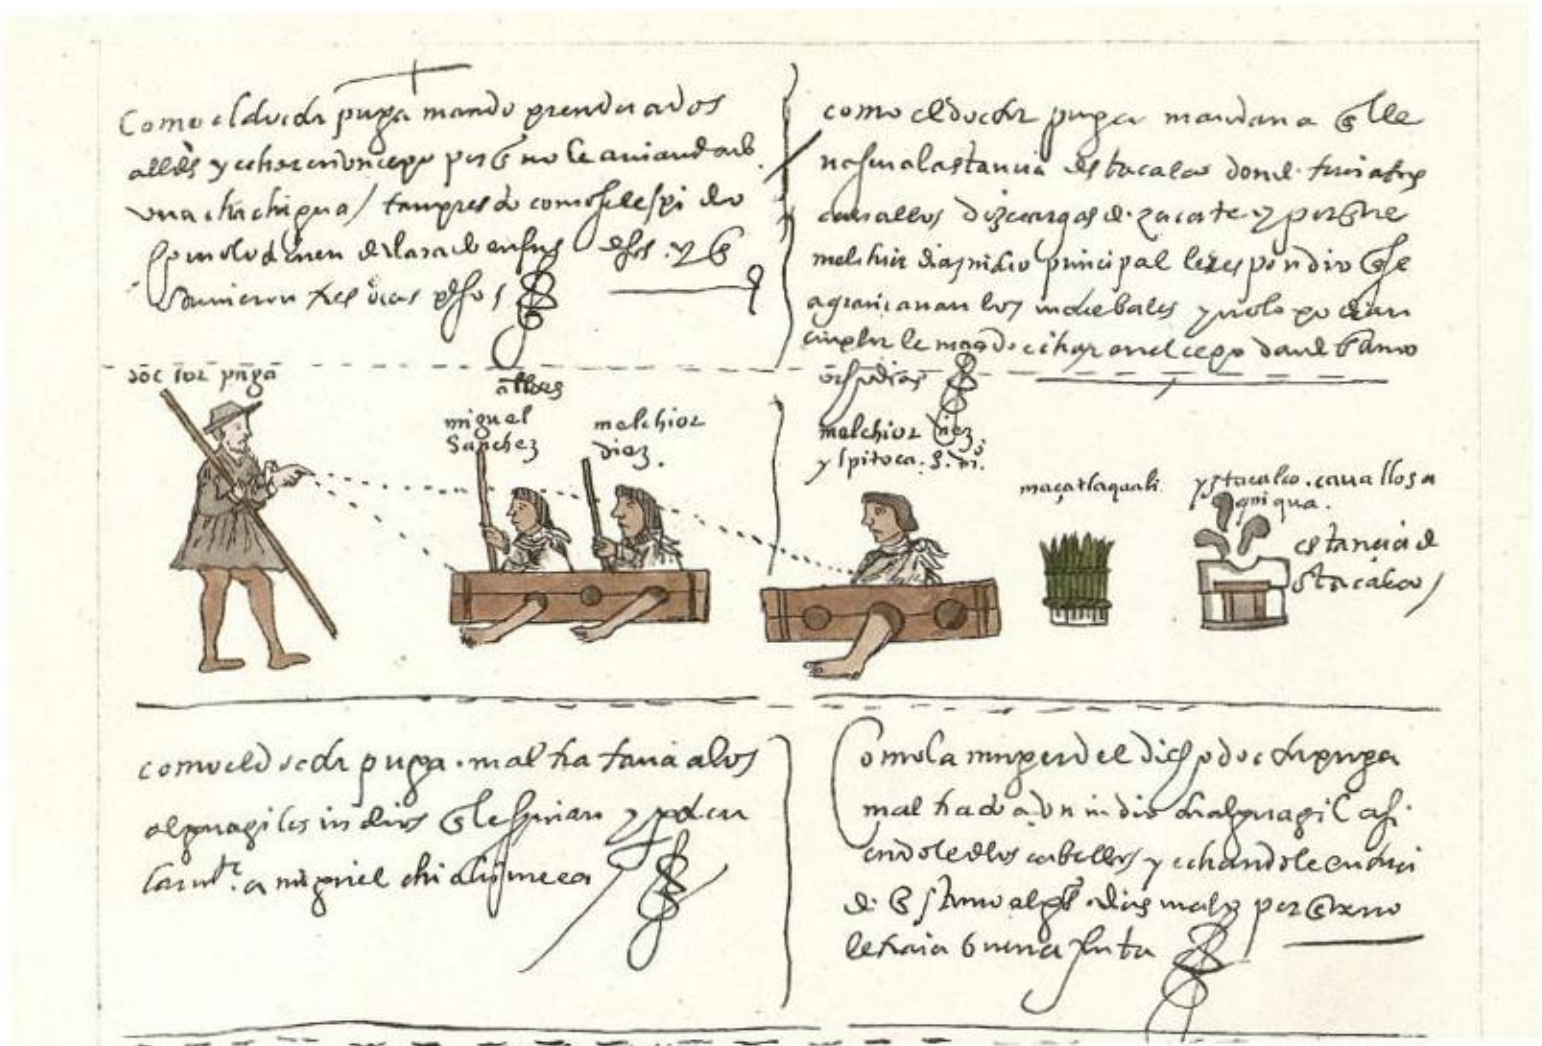 como el doctor puga mando prender a dos
alldes y echar en un cepo porq no le avian dado
una chichigua / tan presto como se le pidio
y
tuvieron tres dias presos
como el doctor puga mandava q lle
nasen a la stancia de stacalco donde tenia tres
cavallos diez cargas de zacate y porque
melchior diaz indio principal le respondio q se
agraviavan los maceguales y no lo podian
cunplir le mando echar en el cepo donde estuvo
doctor puga
alldes
miguel
Sanchez
melchior
diez.
melchior diez
maçatlaquali.
yztacalco. cavallos a
quiqua.
estancia de
stacalco /
como el doctor puga. mal tratava a los
alguaziles indios q le servian y
a miguel chichimeca
Como la muger del dicho doctor puga
mal trato a un indio alguazil asi
endole de los cabellos y echandole en
de q stuvo algs dias malo porque no
le traia buena fruta